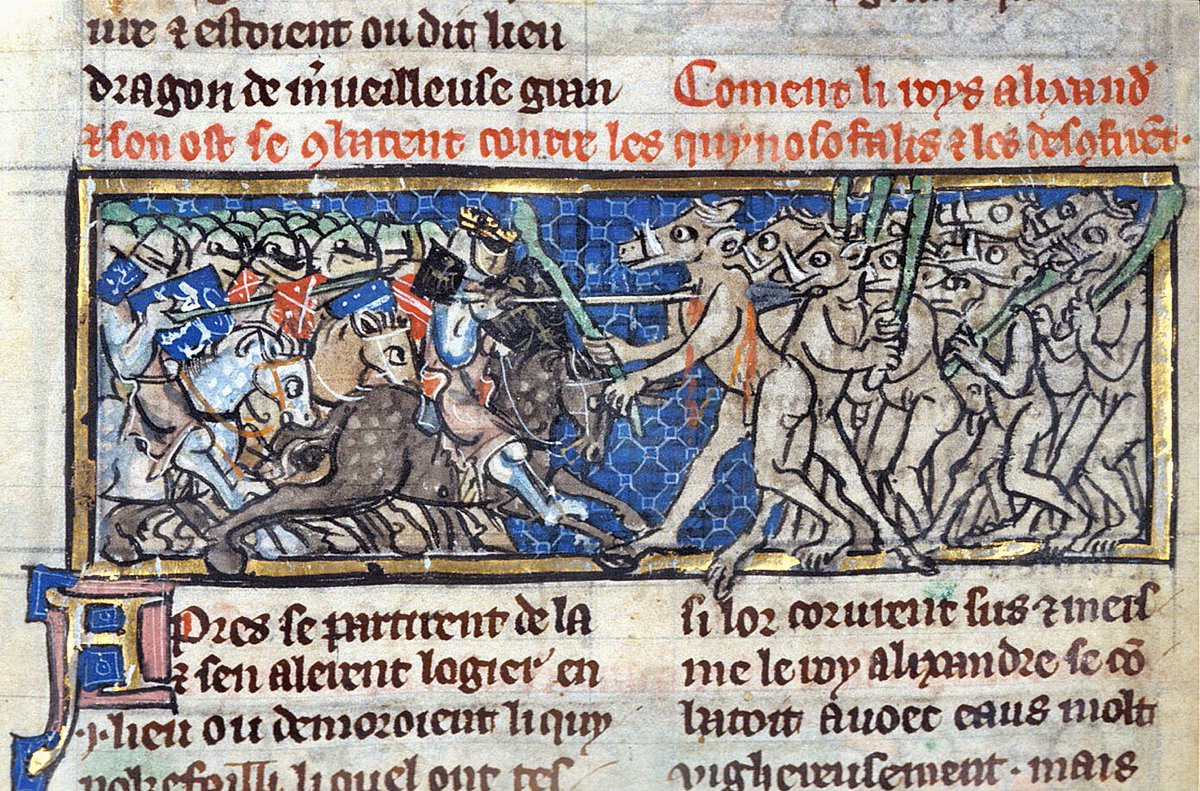 ure & estoient ou dit lieu
dragon de m̃ueilleuse gran
Coment li roys alixand̕
& son ost se ꝯbatent contre les quynosofalis & les desꝯfirẽt.
Apres se partirent de la
& sen alerent logier en
.j. lieu ou demoroient li quy
nokefailli liquel ont tes
si lor corurent sus & meis
me le roy alixandre se cõ
batoit avoec eaus molt
vighereusement. mais